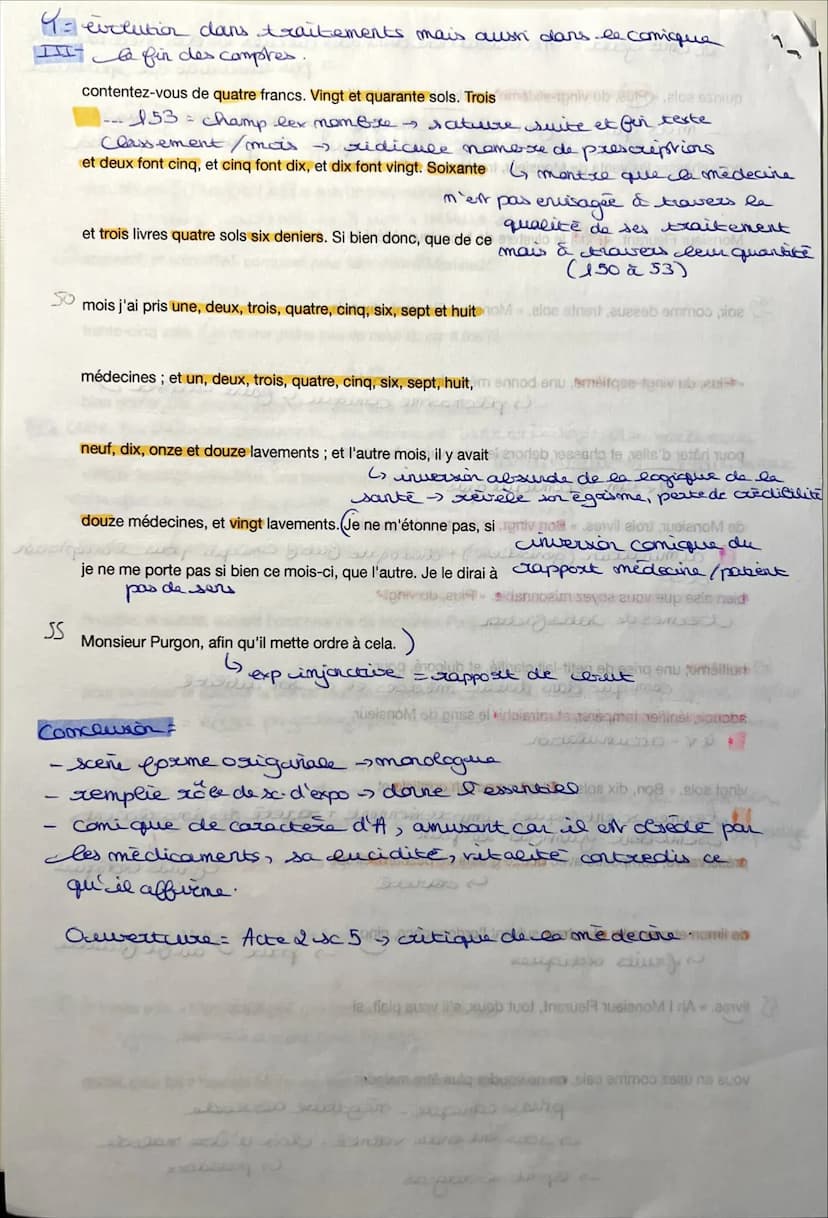 Y = évolution dans traitements mais aussi dans le comique
III- la fin des comptes.
contentez-vous de quatre francs. Vingt et quarante sols. Trois
... l53 = champ lex nombre → sature suite et fin texte
Classement / mois → ridicule nombre de prescriptions
et deux font cinq, et cinq font dix, et dix font vingt. Soixante
↳ montre que la médecine
n'est pas envisagée à travers la
qualité de ses traitement
et trois livres quatre sols six deniers. Si bien donc, que de ce
mais à travers leur quantité
(l50 à 53)
50 mois j'ai pris une, deux, trois, quatre, cinq, six, sept et huit
médecines ; et un, deux, trois, quatre, cinq, six, sept, huit,
neuf, dix, onze et douze lavements ; et l'autre mois, il y avait
↳ inversion absurde de la logique de la
santé → révèle son égoïsme, perte de crédibilité
douze médecines, et vingt lavements. (Je ne m'étonne pas, si
inversion comique du
je ne me porte pas si bien ce mois-ci, que l'autre. Je le dirai à
rapport médecine / patient
pas de sens
55 Monsieur Purgon, afin qu'il mette ordre à cela. )
↳ exp injonctive = rapport de
Conclusion =
- scène forme originale → monologue
- remplie rôle de sc. d'expo → donne l'essentiel
- comique de caractère d'A, amusant car il est obsédé par
les médicaments, sa lucidité, vitalité contredis ce
qu'il affirme.
Ouverture = Acte 2 sc 5 → critique de la médecine.